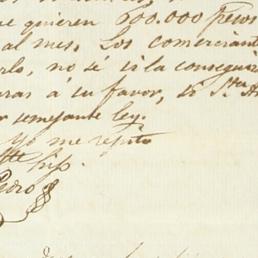 e quieren 600.000 pesos
al mes. Los comerciant
rlo, no sé si la consegui
ras á su favor, si Sta. A
r semejante ley.
Yo me repito
hijo
Pedro